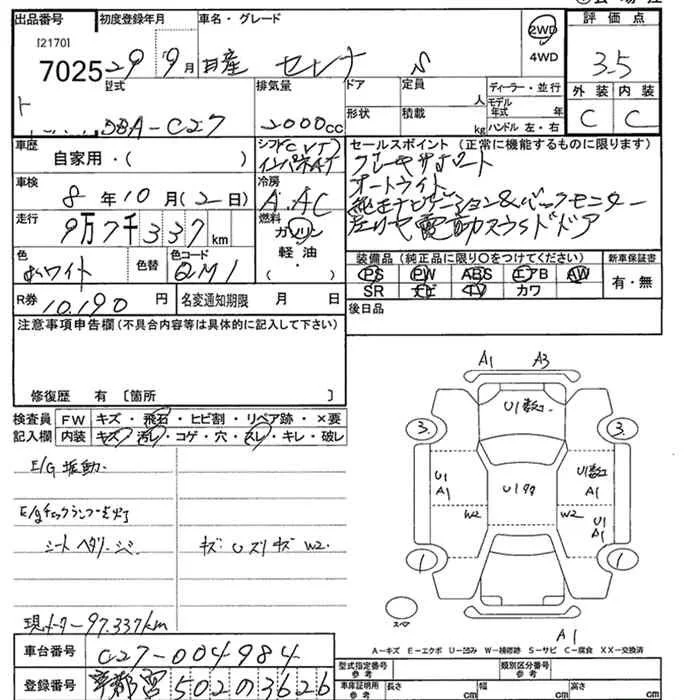 出品番号 初度登録年月 車名・グレード 評価点
[2170]
7025 29年9月 日産 セレナ S 2WD 4WD 3.5
型式 排気量 ドア 定員 人 ディーラー・並行
モデル年式 年
外装 内装
DBA-C27 2000cc 形状 積載 kg ハンドル 左・右 C C
車歴 自家用・( )
シフト CVT インパネAT
セールスポイント(正常に機能するものに限ります)
ブレーキサポート
オートライト
純正ナビゲーション&バックモニター
左リヤ電動スライドドア
車検 8年10月(2日) 冷房 A.AC
走行 9万7千337km 燃料 ガソリン 軽油 ・( )
色 ホワイト 色替 色コード QM1
装備品(純正品に限り○をつけてください) 新車保証書
PS PW ABS エアB AW 有・無
SR ナビ TV カワ
R券 10,190円 名変通知期限 月 日
後日品
注意事項申告欄(不具合内容等は具体的に記入して下さい)
修復歴 有 [箇所 ]
検査員記入欄 FW キズ・飛石・ヒビ割・リペア跡・×要
内装 キズ・汚レ・コゲ・穴・スレ・キレ・破レ
E/G振動.
E/gチェックランプ点灯
シート ヘタリ・シミ. キズ:Uズリキズ W2.
現メーター97.337km
車台番号 C27-004984
登録番号 宇都宮 502 の 3626
A1 A3
U1数コ.
3. 3.
U1 A1 U1数コ A1
U1タタ
W2 W2 U1 A1
1 1
スペア
A1
A-キズ E-エクボ U-凹み W-補修跡 S-サビ C-腐食 XX-交換済
型式指定番号 参考 類別区分番号 参考
車庫証明用 参考 長さ cm 幅 cm 高さ cm